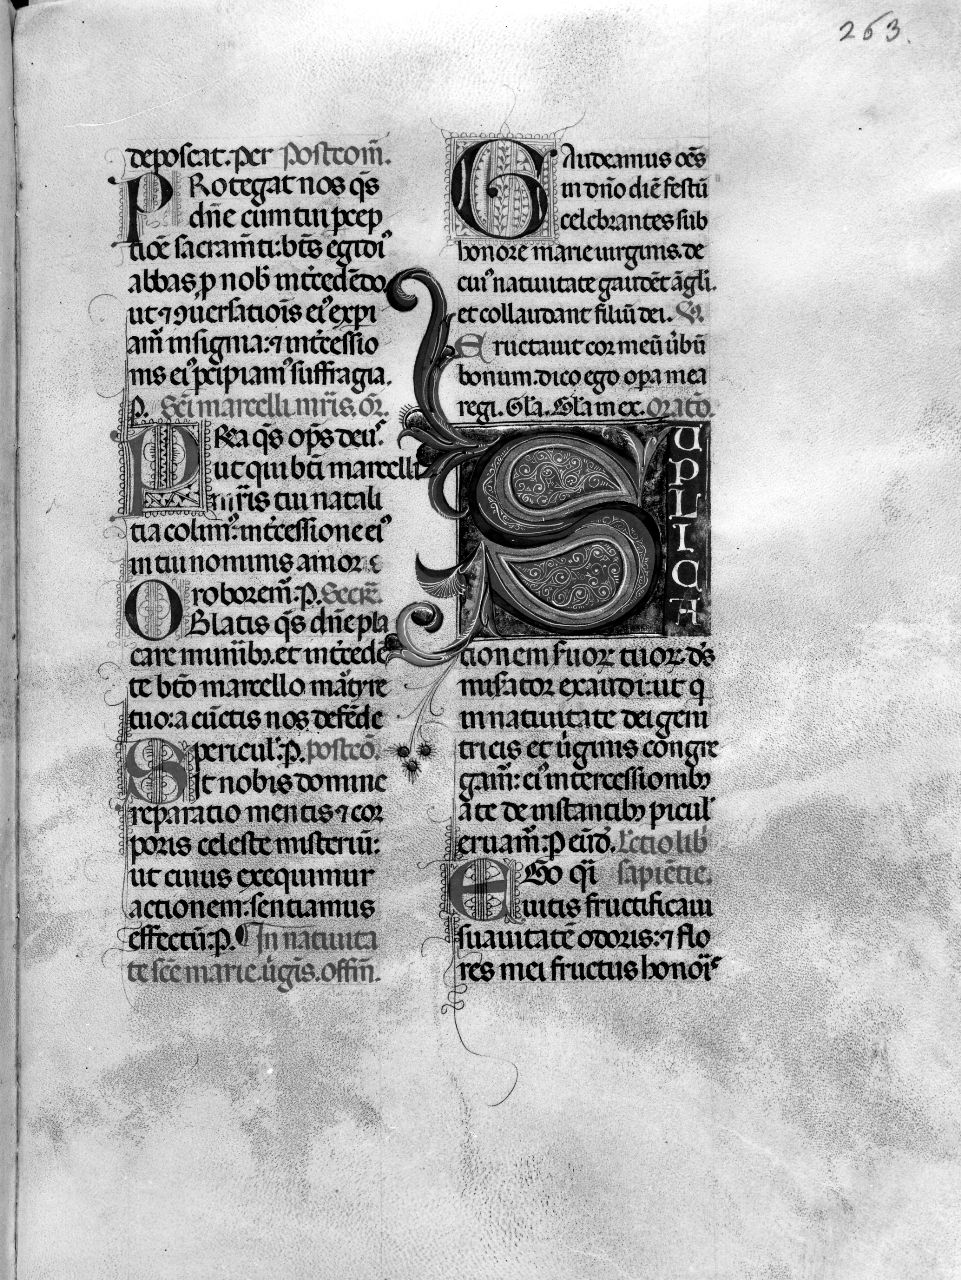 263.
deposcat. per postcom̄.
Protegat nos q̄s
dn̄e cum tui p̄cep
tiōe sacram̄ti: bt̄s egidiꝰ
abbas, ꝓ nob̄ int̄cedēdo
ut ⁊ ꝯuersatiōis eiꝰ expi
am̄ insignia: ⁊ int̄cessio
nis eiꝰ ꝑcipiamꝰ suffragia.
P. Sc̄i marcelli mr̄is. or̄.
Prēa q̄s op̄s deuꝰ.
ut qui bt̄i marcelli
mr̄is tui natali
tia colimꝰ: int̄cessione eiꝰ
in tui nominis amor
roborem̄. P. Secr̄e.
Oblatis q̄s dn̄e pla
care munib̄ꝫ. et int̄cedē
te bt̄o marcello mar̄tyre
tuo: a cūctis nos defēde
pericul̄. P. postcō.
Sit nobis domine
reparatio mentis ⁊ cor
poris celeste misteriū:
ut cuius exequimur
actionem: sentiamus
effectū: P. In natiuita
te sc̄e marie ūgīs. offm̄.
Gaudeamus oēs
in dn̄o diē festū
celebrantes sub
honore marie uirginis. de
cuiꝰ natiuitate gaudēt āgli.
et collaudant filiū dei. P̄.
Eructauit cor meū ūbū
bonum. dico ego opa mea
regi. Gla. Gla in ex. oratō.
SUPLICA
tionem suor tuor. ds̄
miserator exaudi: ut q̄
in natiuitate dei geni
tricis et ūginis congre
gam̄: eiꝰ intercessionibꝫ
a te de instantibꝫ picul̄
eruam̄: P eūd̄. Lectio lib̄
Ego q̄i sapiētie.
uitis fructificaui
suauitatē odoris: ⁊ flo
res mei fructus honōis